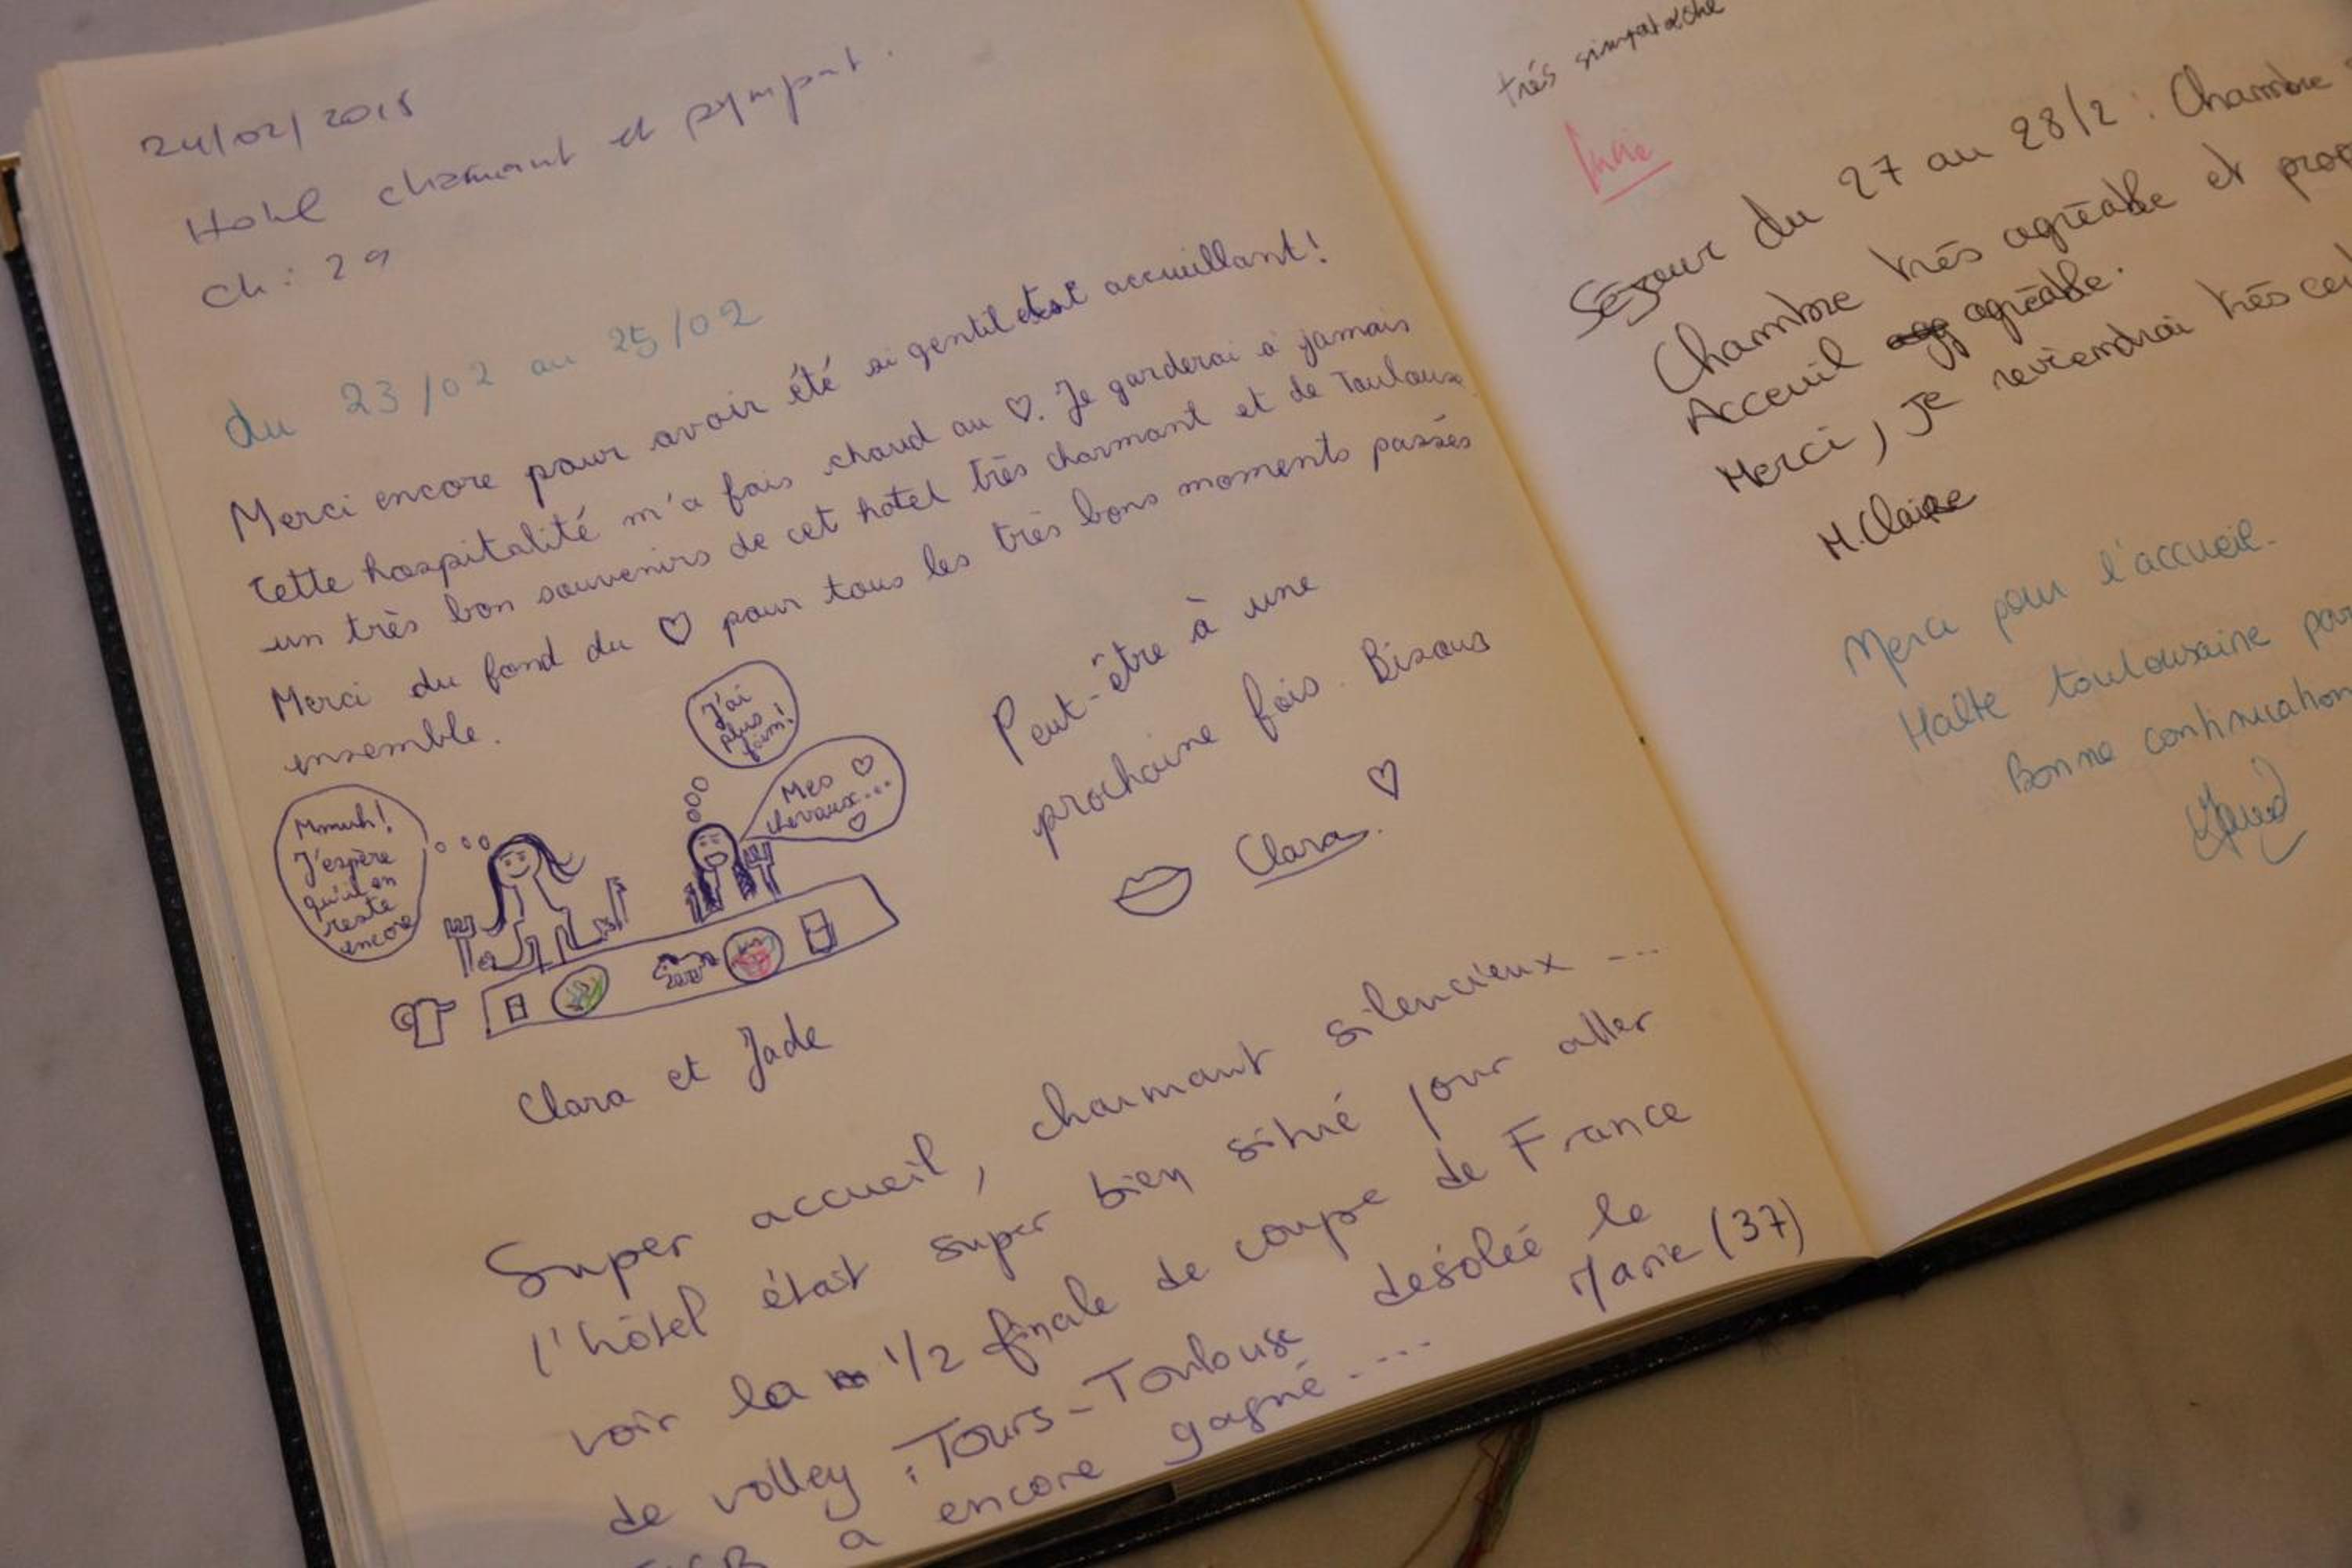 24/02/2015
Hotel charmant et sympat.
Ch: 29
du 23/02 au 25/02
Merci encore pour avoir été si gentil et accueillant!
Cette hospitalité m'a fais chaud au ♡. Je garderai à jamais
un très bon souvenirs de cet hotel très charmant et de Toulouse
Merci du fond du ♡ pour tous les très bons moments passés
ensemble.
J'ai
plus
faim!
Mes ♡
chevaux...
♡
Mmmh!
J'espère
qu'il en
reste
encore
Peut-être à une
prochaine fois. Bisous
♡
Clara.
Clara et Jade
Super accueil, charmant silencieux ...
l'hôtel était super bien situé pour aller
voir la 1/2 finale de coupe de France
de volley : Tours-Toulouse désolée le
a encore gagné.... Marie (37)
très simpatoche
Séjour du 27 au 28/2 : Chambre
Chambre très agréable et
Acceuil agréable.
Merci, je reviendrai très
M.Claire
Merci pour l'accueil.
Halte toulousaine
Bonne continuation